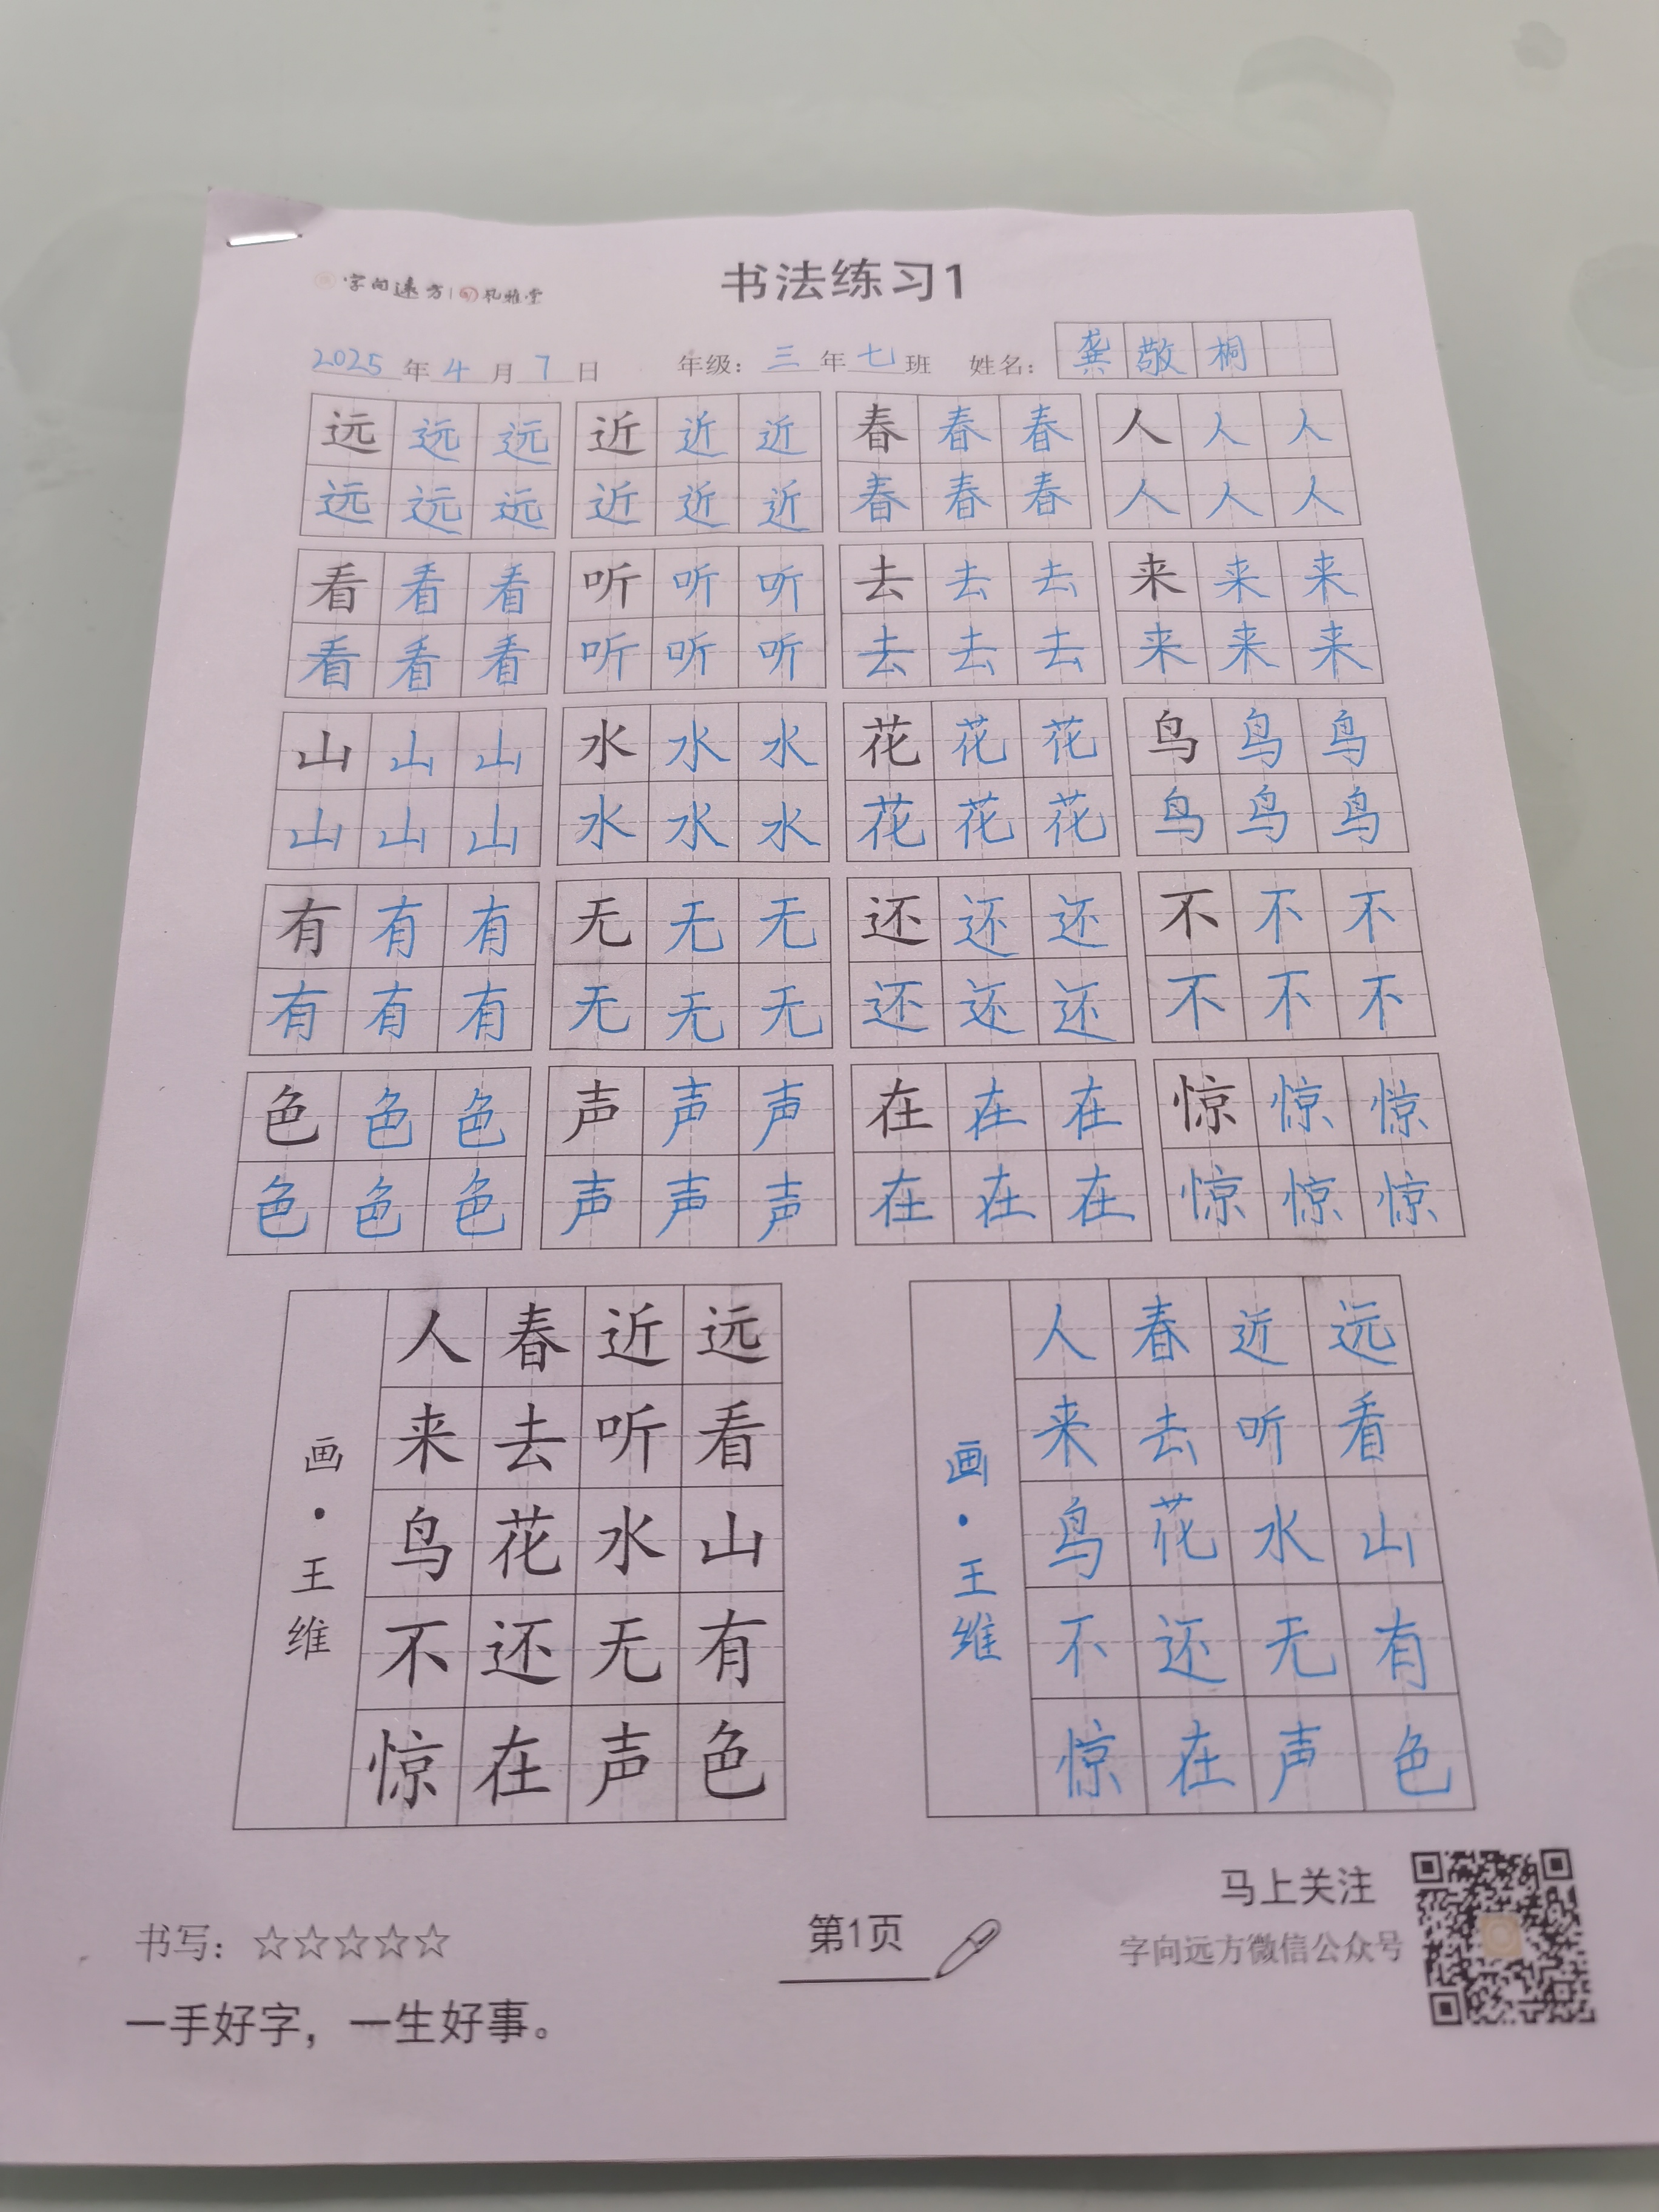 字向远方 孔雅堂
书法练习1
2025年4月7日 年级：三年七班 姓名：龚敬桐
远远远 近近近 春春春 人人人
远远远 近近近 春春春 人人人
看看看 听听听 去去去 来来来
看看看 听听听 去去去 来来来
山山山 水水水 花花花 鸟鸟鸟
山山山 水水水 花花花 鸟鸟鸟
有有有 无无无 还还还 不不不
有有有 无无无 还还还 不不不
色色色 声声声 在在在 惊惊惊
色色色 声声声 在在在 惊惊惊
远看山有色
近听水无声
春去花还在
人来鸟不惊
画·王维
远看山有色
近听水无声
春去花还在
人来鸟不惊
画·王维
书写：☆☆☆☆☆
一手好字，一生好事。
第1页
马上关注
字向远方微信公众号